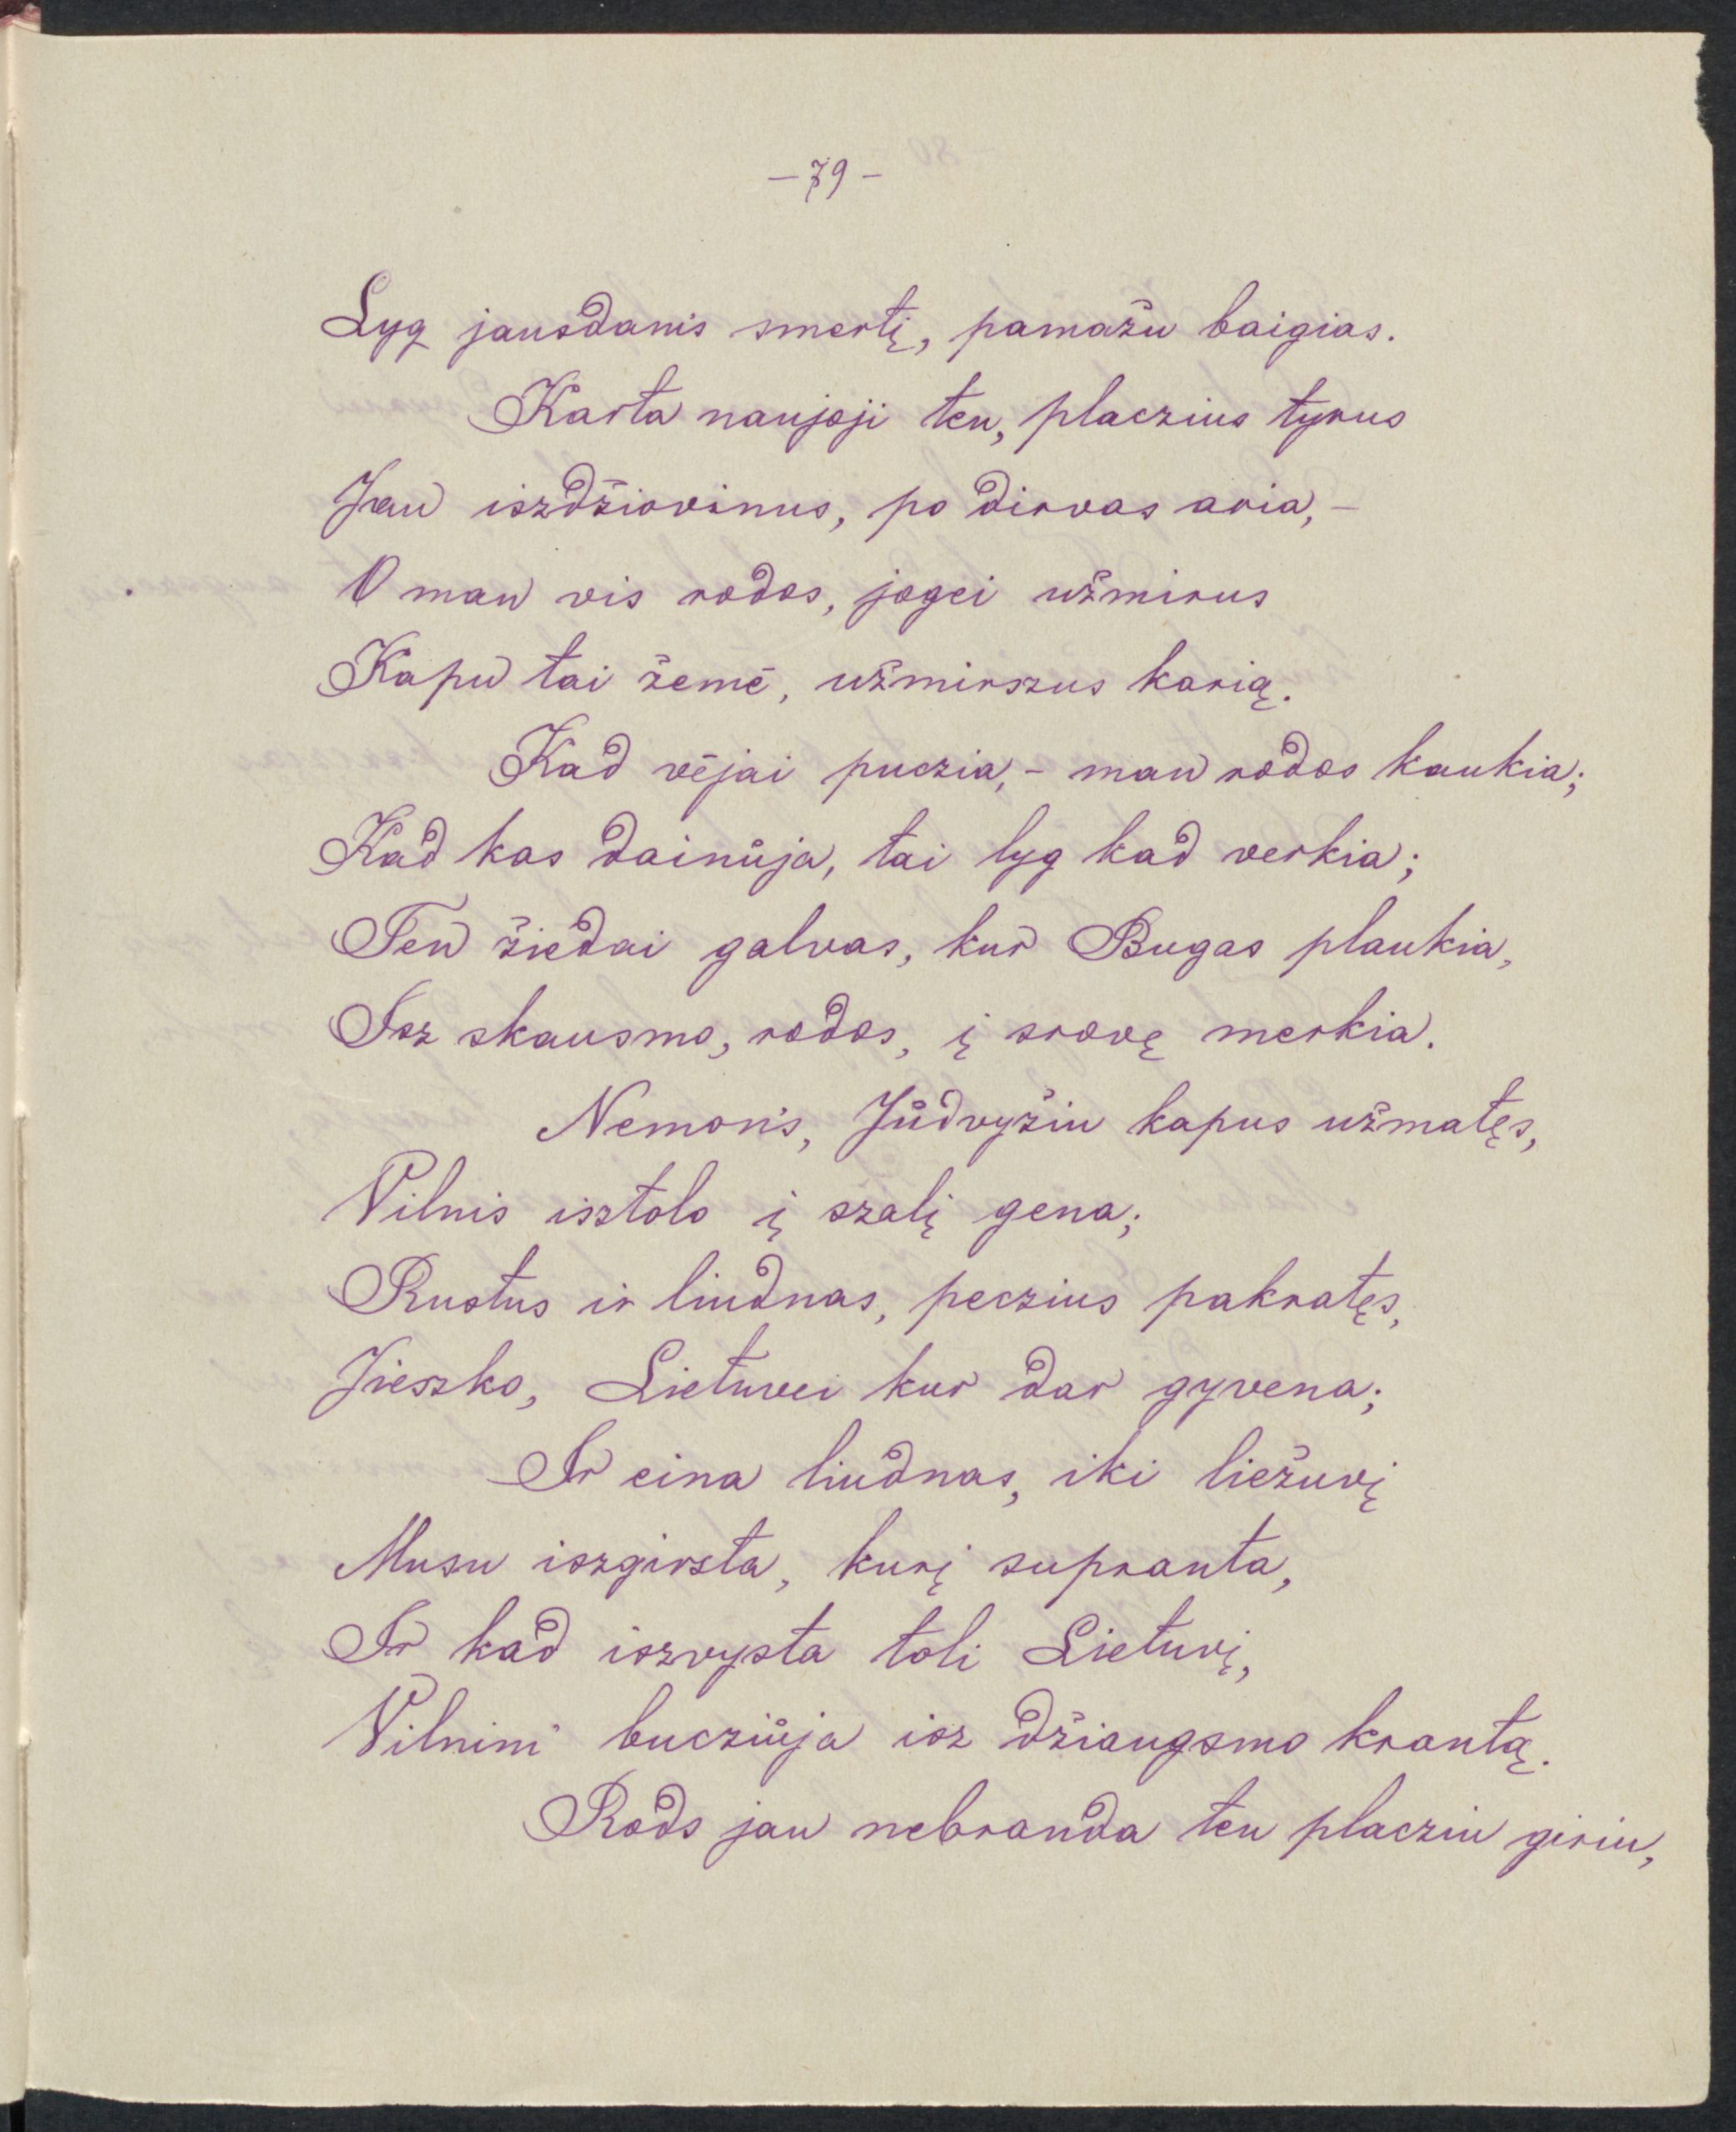 - 79 -
Lyg jausdamis smertį, pamažu baigias.
Karta naujoji ten, placzius tyrus
Jau iszdžiovinus, po dirvas aria, -
O man vis rodos, jogei užmirus
Kapu tai žemė, užmirszus karią.
Kad vėjai puczia, - man rodos kaukia;
Kad kas dainůja, tai lyg kad verkia;
Ten žiedai galvas, kur Bugas plaukia,
Isz skausmo, rodos, į srovę merkia.
Nemon's, Jůdvyžiu kapus užmatęs,
Vilnis isztolo į szalį gena;
Rustus ir liudnas, peczius pakratęs,
Jieszko, Lietuvei kur dar gyvena;
Ir eina liudnas, iki liežuvį
Musu iszgirsta, kurį supranta,
Ir kad iszvysta toli Lietuvį,
Vilnimi bucziůja isz džiaugsmo krantą.
Rods jau nebranda ten placziu giriu,